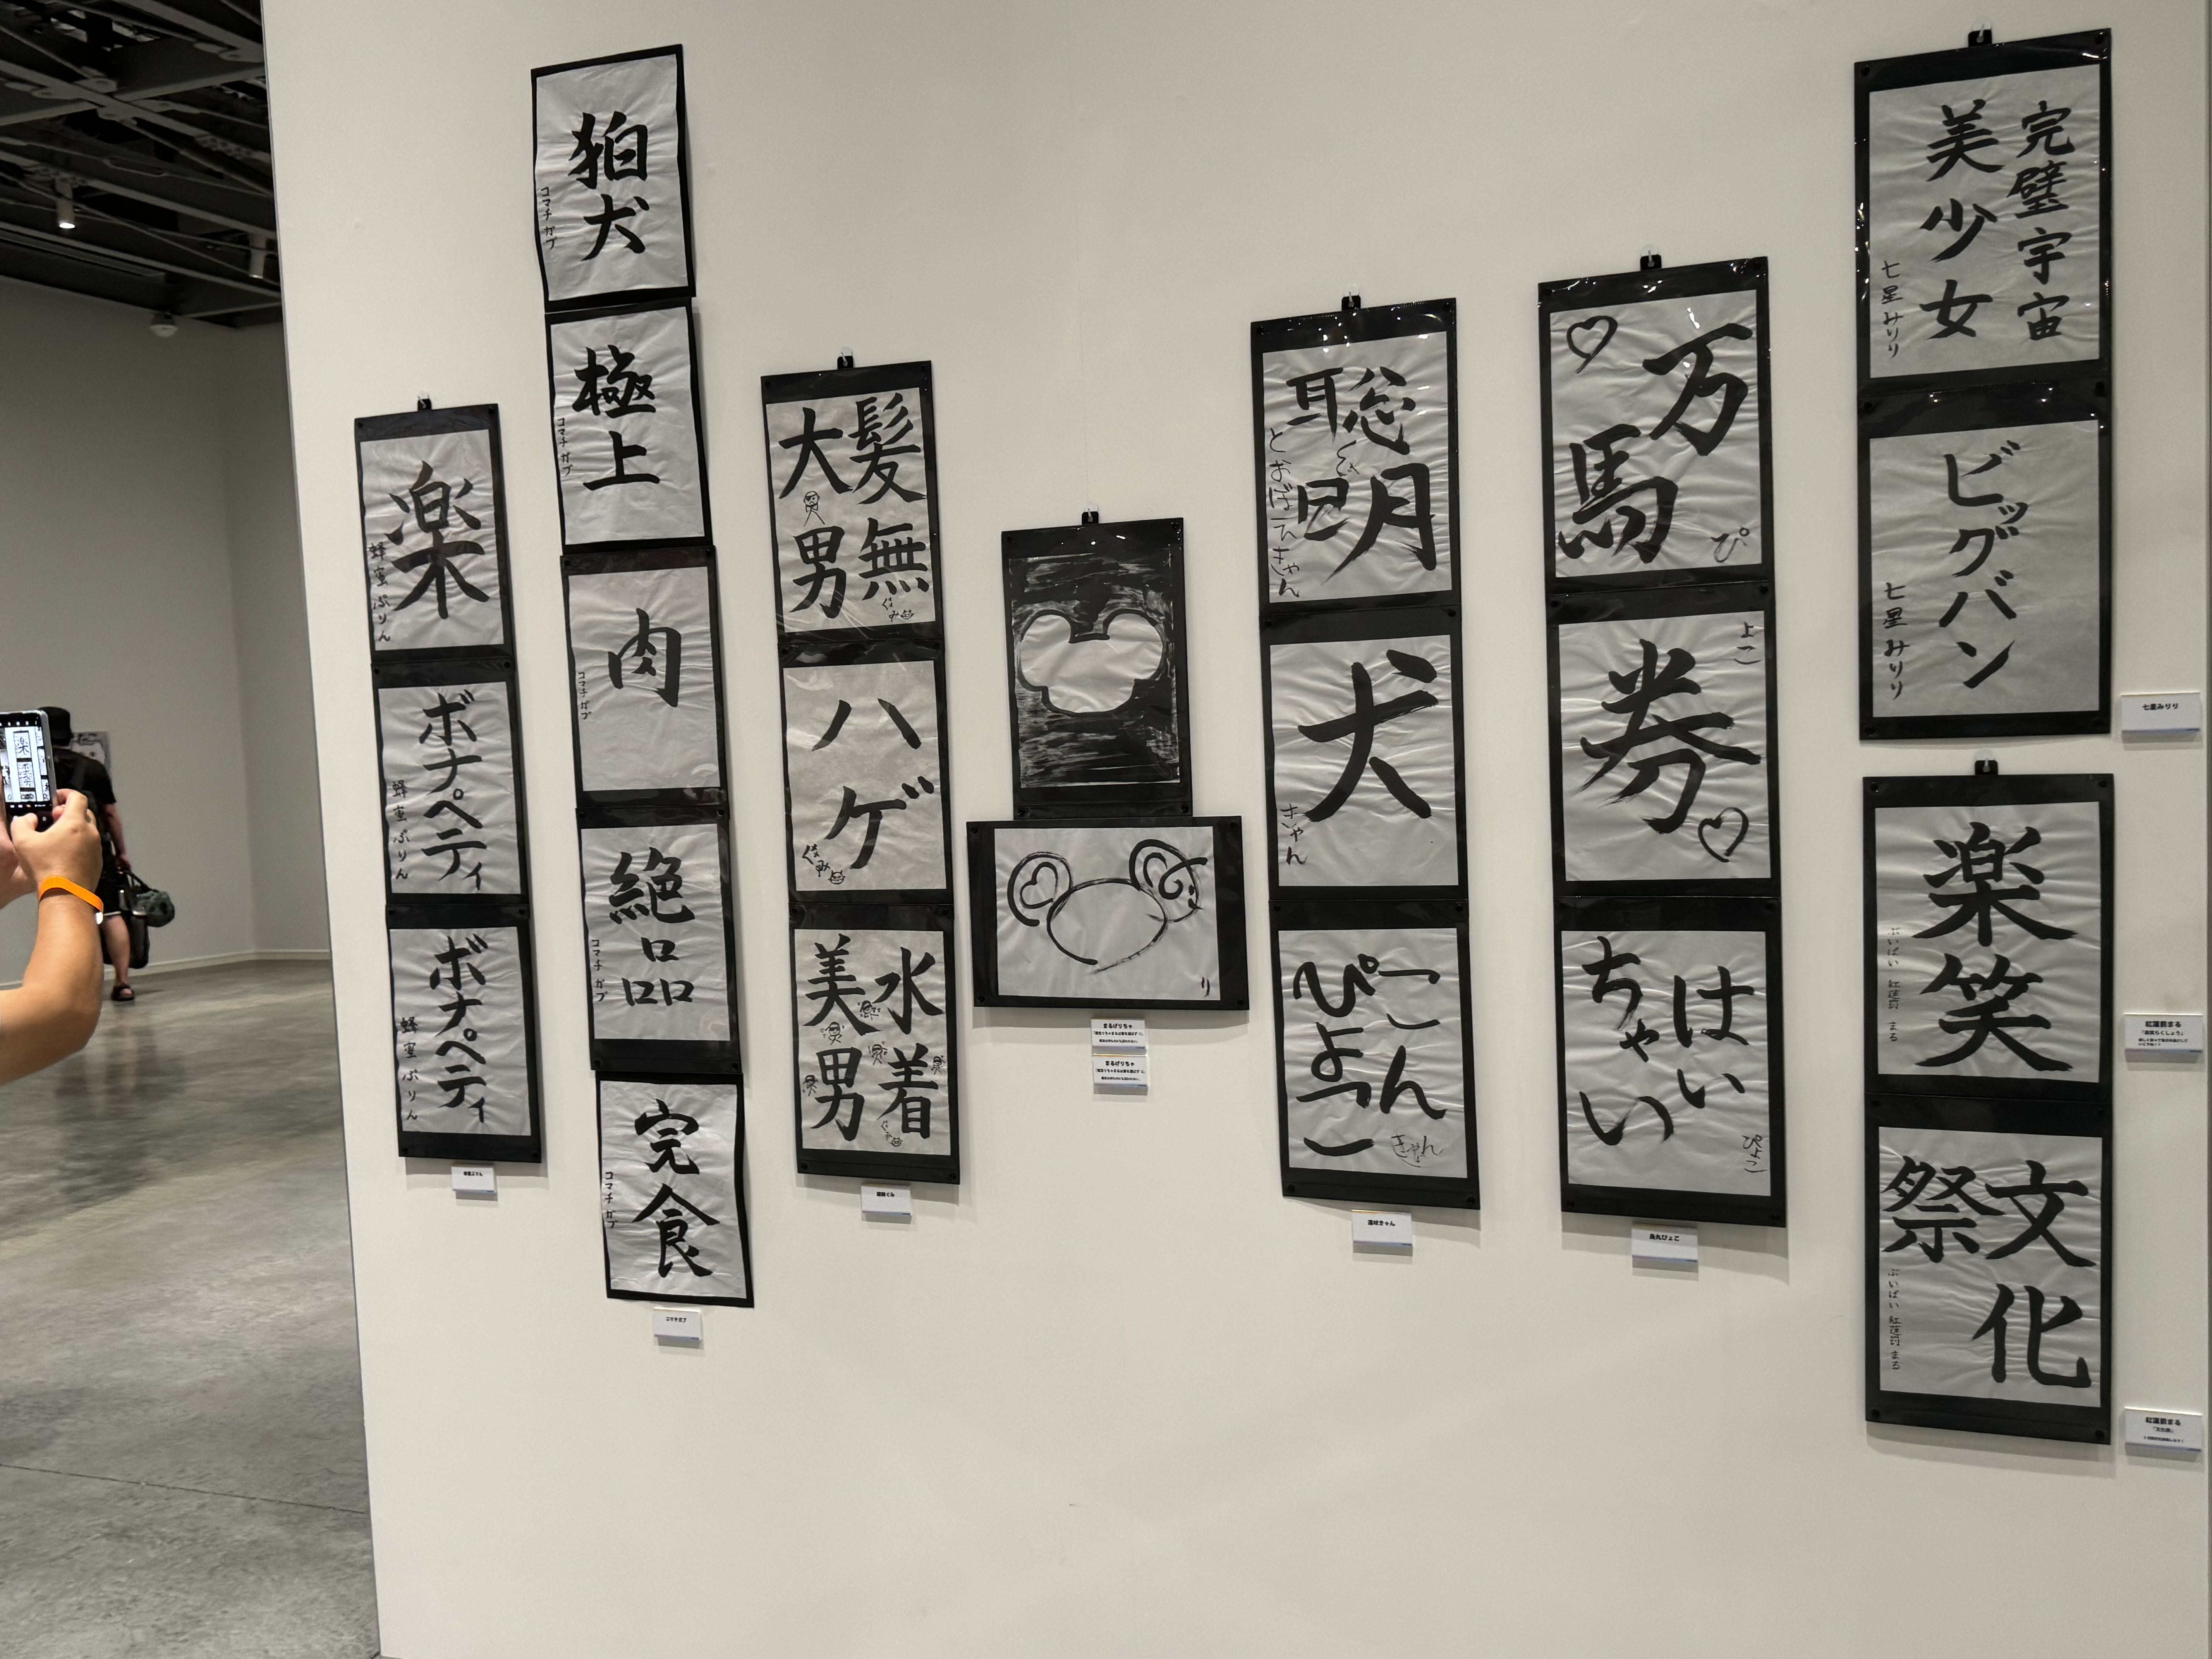 楽
蜂蜜ぷりん
ボナペティ
蜂蜜ぷりん
ボナペティ
蜂蜜ぷりん
狛犬
コマチガブ
極上
コマチガブ
肉
コマチガブ
絶品
コマチガブ
完食
コマチガブ
コマチガブ
髪無
大男
ぐみ
ハゲ
ぐみ
水着
美男
ぐみ
り
まるげりちゃ
まるげりちゃ
聡明
とおぼえきゃん
犬
きゃん
こん
ぴょこ
きゃん
遠吠きゃん
万馬
ぴ
よこ
券
はい
ちゃい
ぴよこ
烏丸ぴょこ
完璧宇宙
美少女
七星みりり
ビッグバン
七星みりり
七星みりり
楽笑
ぶいぱい 紅蓮罰 まる
紅蓮罰まる
文化
祭
ぶいぱい 紅蓮罰 まる
紅蓮罰まる
「文化祭」